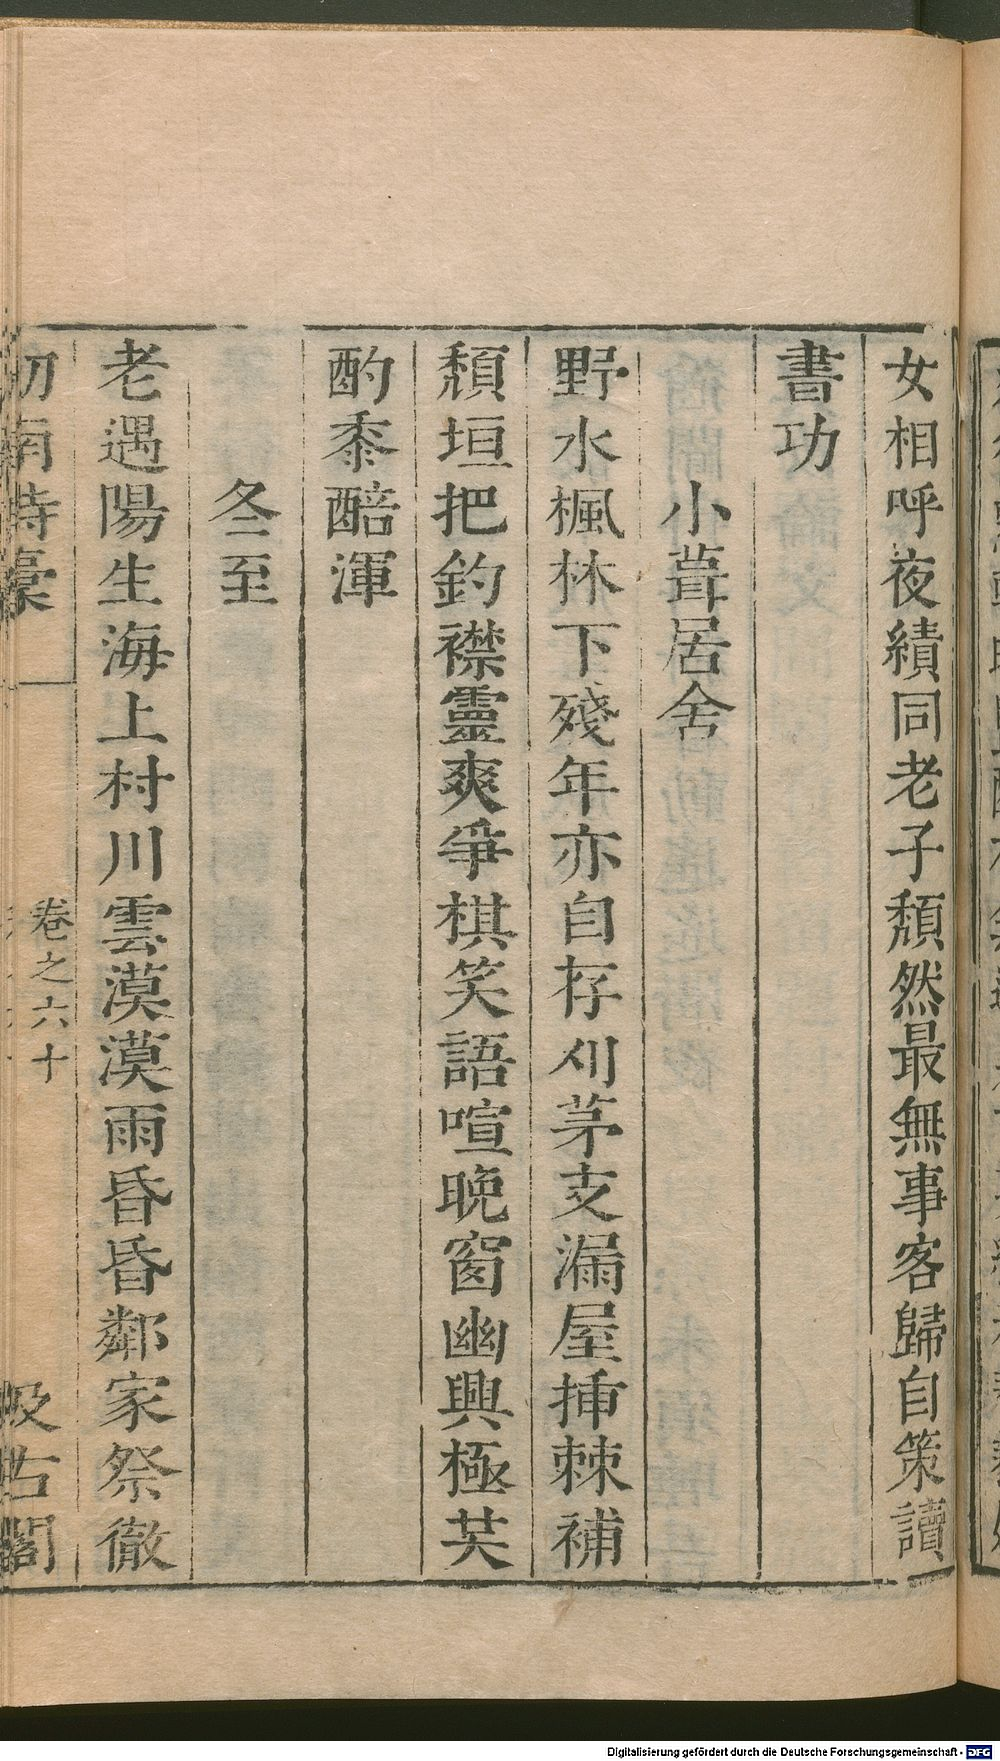 女相呼夜績同老子頹然最無事客歸自策讀
書功
小葺居舍
野水楓林下殘年亦自存刈茅支漏屋揷棘補
頽垣把釣襟靈爽爭棋笑語喧晚窗幽興極芺
酌黍醅渾
冬至
老遇陽生海上村川雲漠漠雨昏昏鄰家祭徹
劒南詩稾
卷之六十
汲古閣
Digitalisierung gefördert durch die Deutsche Forschungsgemeinschaft - DFG